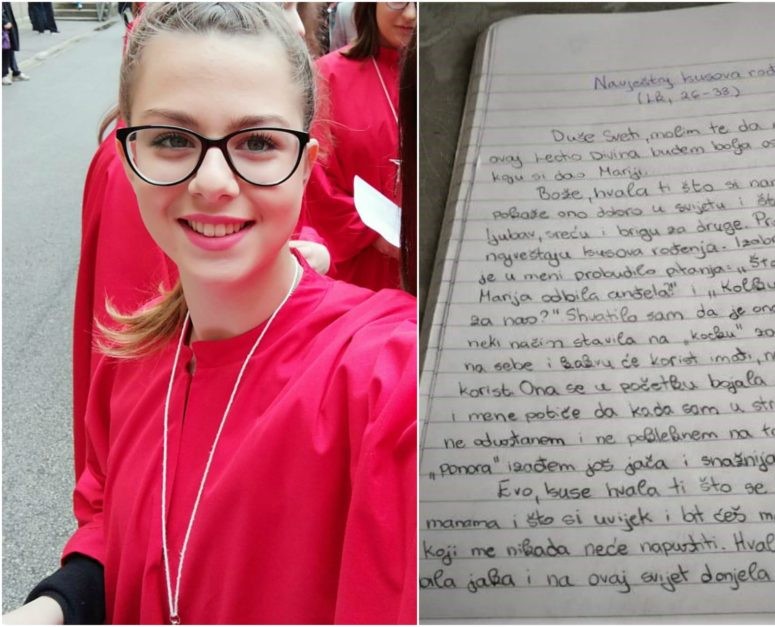 Navještaj Isusova rođ
(Lk, 26-38)
Duše Sveti, molim te da
ovaj Lectio Divina budem bolja os
koju si dao Mariji.
Bože, hvala ti što si nam
pokaže ono dobro u svijetu i št
ljubav, sreću i brigu za druge. Pr
navještaju Isusova rođenja. Izab
je u meni probudilo pitanja: „Što
Marija odbila anđela?" i „Koliko
za nas?" Shvatila sam da je ona
neki način stavila na „kocku" za
na sebe i kakvu će korist imati, n
korist. Ona se u početku bojala
i mene potiče da kada sam u str
ne odustanem i ne pokleknem na to
„ponora" izađem još jača i snažnija
Evo, Isuse hvala ti što se
manama i što si uvijek i bit ćeš m
koji me nikada neće napustiti. Hval
ala jaka i na ovaj svijet donjela